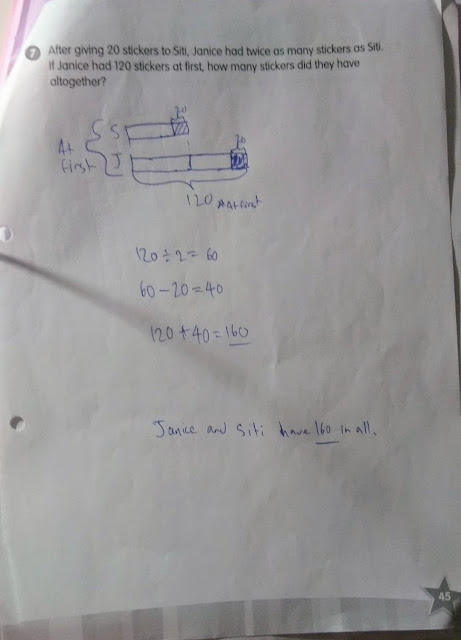 7 After giving 20 stickers to Siti, Janice had twice as many stickers as Siti.
If Janice had 120 stickers at first, how many stickers did they have
altogether?
20
At first
S
20
J
120 At first
120 ÷ 2 = 60
60 - 20 = 40
120 + 40 = 160
Janice and Siti have 160 in all.
45